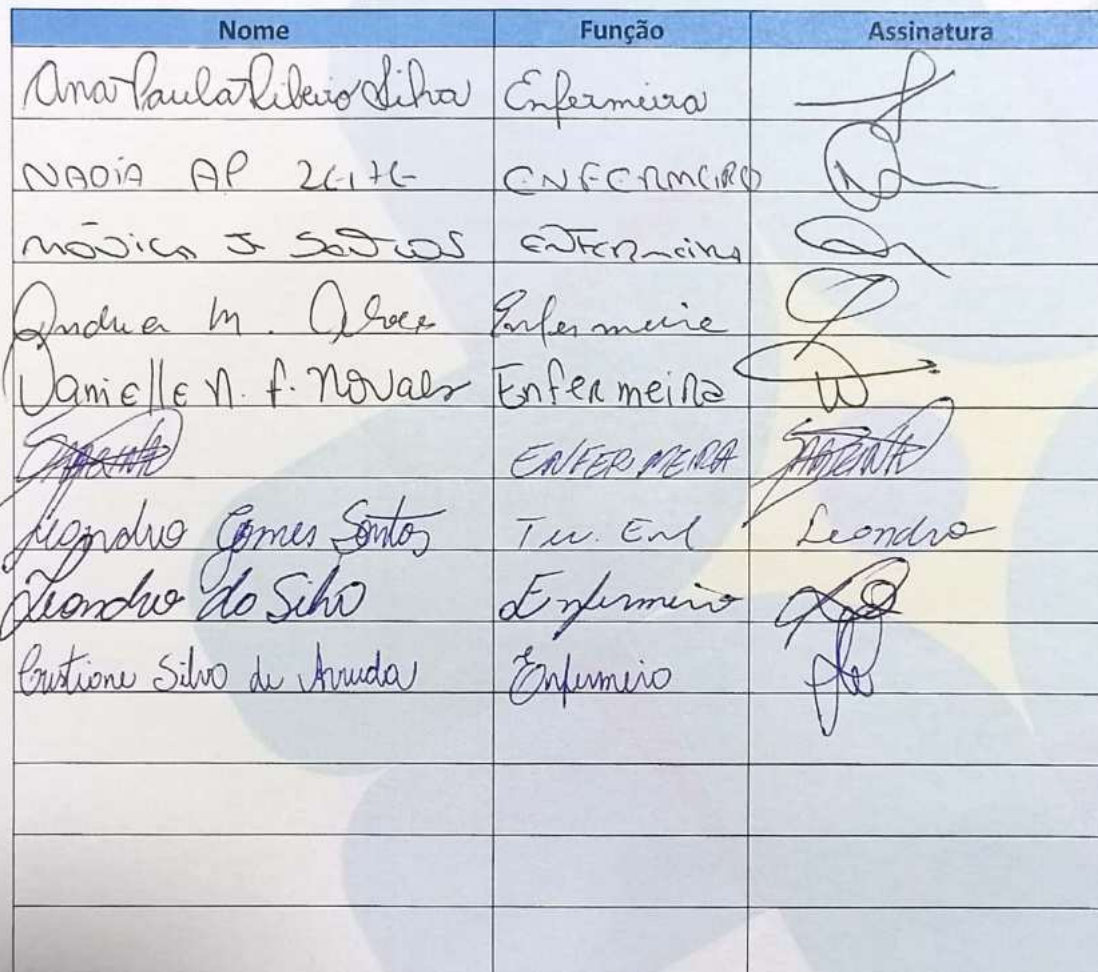 Nome Função Assinatura
Ana Paula Ribeiro Silva Enfermeira
NADIA AP LEITE ENFERMEIRO
MÔNICA J SANTOS ENFERMEIRA
Andrea M. Alves Enfermeira
Danielle N. F. Novaes Enfermeira
SABRINA ENFERMEIRA SABRINA
Leandro Gomes Santos Tec. Enf Leandro
Leandro da Silva Enfermeiro
Cristiane Silva de Arruda Enfermeira